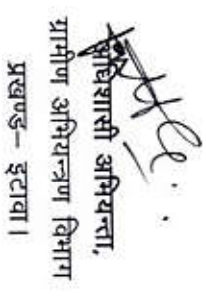 अधिशासी अभियन्ता,
ग्रामीण अभियन्त्रण विभाग
प्रखण्ड- इटावा।